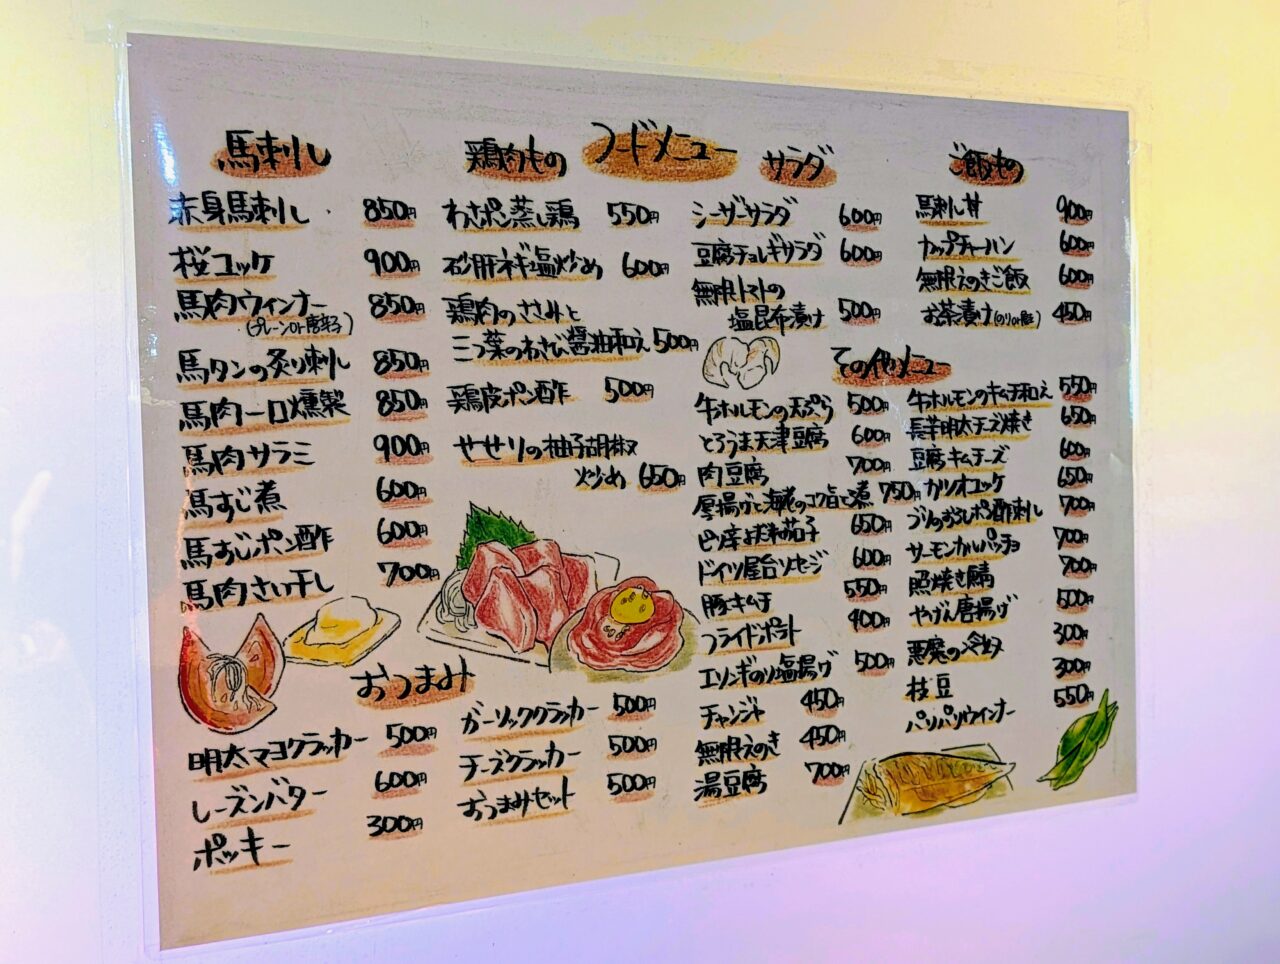 フードメニュー
馬刺し
赤身馬刺し 850円
桜ユッケ 900円
馬肉ウィンナー 850円
(プレーンor唐辛子)
馬タンの炙り刺し 850円
馬肉一口燻製 850円
馬肉サラミ 900円
馬すじ煮 600円
馬すじポン酢 600円
馬肉さい干し 700円
鶏肉もの
わさポン蒸し鶏 550円
砂肝ネギ塩炒め 600円
鶏肉のささみと
三つ葉のわさび醤油和え 500円
鶏皮ポン酢 500円
せせりの柚子胡椒
炒め 650円
サラダ
シーザーサラダ 600円
豆腐チョレギサラダ 600円
無限トマトの
塩昆布漬け 500円
ご飯もの
馬刺し丼 900円
カップチャーハン 600円
無限えのきご飯 600円
お茶漬け 450円
その他メニュー
牛ホルモンの天ぷら 500円
とろうま天津豆腐 600円
肉豆腐 700円
厚揚げと海老のコク旨と煮 750円
茄子 650円
ドイツ屋台ソーセージ 600円
豚キムチ 550円
フライドポテト 400円
エリンギのり塩揚げ 500円
チャンジャ 450円
無限えのき 450円
湯豆腐 700円
牛ホルモンのキムチ和え 550円
長芋明太チーズ焼き 650円
豆腐キムチーズ 600円
カツオユッケ 650円
ブリのおろしポン酢刺し 700円
サーモンカルパッチョ 700円
照焼き鯖 700円
やげん唐揚げ 500円
悪魔の冷奴 300円
枝豆 300円
パリパリウインナー 550円
おつまみ
明太マヨクラッカー 500円
レーズンバター 600円
ポッキー 300円
ガーリッククラッカー 500円
チーズクラッカー 500円
おつまみセット 500円